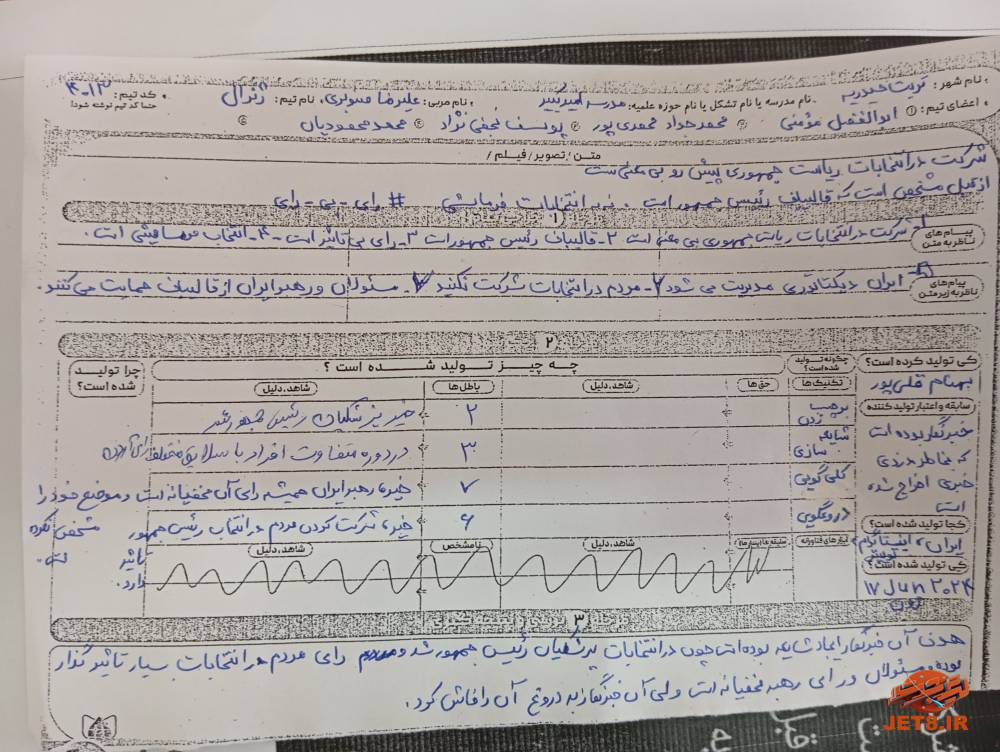 نام شهر: تربت حیدریه ، نام مدرسه یا نام تشکل یا نام حوزه علمیه: مدرسه امیرکبیر ، نام مربی: علیرضا صبوری ، نام تیم: ژنرال ، کد تیم: ۴۰۱۲
حتما کد تیم نوشته شود!
اعضای تیم: ① ابوالفضل مؤمنی ② محمدجواد محمدی پور ③ یوسف نجفی نژاد ④ محمد محمودیان ⑤
متن / تصویر / فیلم /
شرکت در انتخابات ریاست جمهوری پیش رو بی معنی ست
از قبل مشخص است که قالیباف رئیس جمهور است . نه به انتخابات فرمایشی # رای - بی - رای
۱
پیام های ناظر به متن
۱- شرکت در انتخابات ریاست جمهوری بی معنی است ۲- قالیباف رئیس جمهور است ۳- رای بی تاثیر است - ۴- انتخاب فرمایشی است .
پیام های ناظر به زیر متن
ایران دیکتاتوری مدیریت می شود مردم در انتخابات شرکت نکنید ۷- مسئولان و رهبر ایران از قالیباف حمایت می کنند .
۲
کی تولید کرده است؟
چگونه تولید شده است؟
چه چیز تولید شده است ؟
چرا تولید شده است؟
تکنیک ها
حق ها
شاهد، دلیل
باطل ها
شاهد، دلیل
بهنام قلی پور
سابقه و اعتبار تولید کننده
خبرنگار بوده است
که بخاطر
خبری اخراج شده
است
برچسب زدن ۲ خیر پزشکیان رئیس جمهور شد
شایعه سازی ۳ در دوره متفاوت افراد با سلایق مختلف رای آورده
کلی گویی ۷ خیر، رهبر ایران همیشه رای آن مخفیانه است و موضع خود را مشخص نکرده است .
دروغگویی ۶ خیر، شرکت کردن مردم در انتخاب رئیس جمهور تاثیر دارد .
کجا تولید شده است؟
ایران، اینستاگرام، توییتر
کی تولید شده است؟
۱۷ Jun ۲۰۲۴
ژوئن
ابزارهای فناورانه
سلیقه ها
شاهد، دلیل
نامشخص
شاهد، دلیل
مرحله ۳
هدف آن خبرنگار ایجاد شایعه بوده است چون در انتخابات پزشکیان رئیس جمهور شد و رای مردم در انتخابات بسیار تاثیر گذار
بوده مسئولان و رای رهبر مخفیانه است ولی آن خبرنگار به دروغ آن را فاش کرد .
JET8.IR